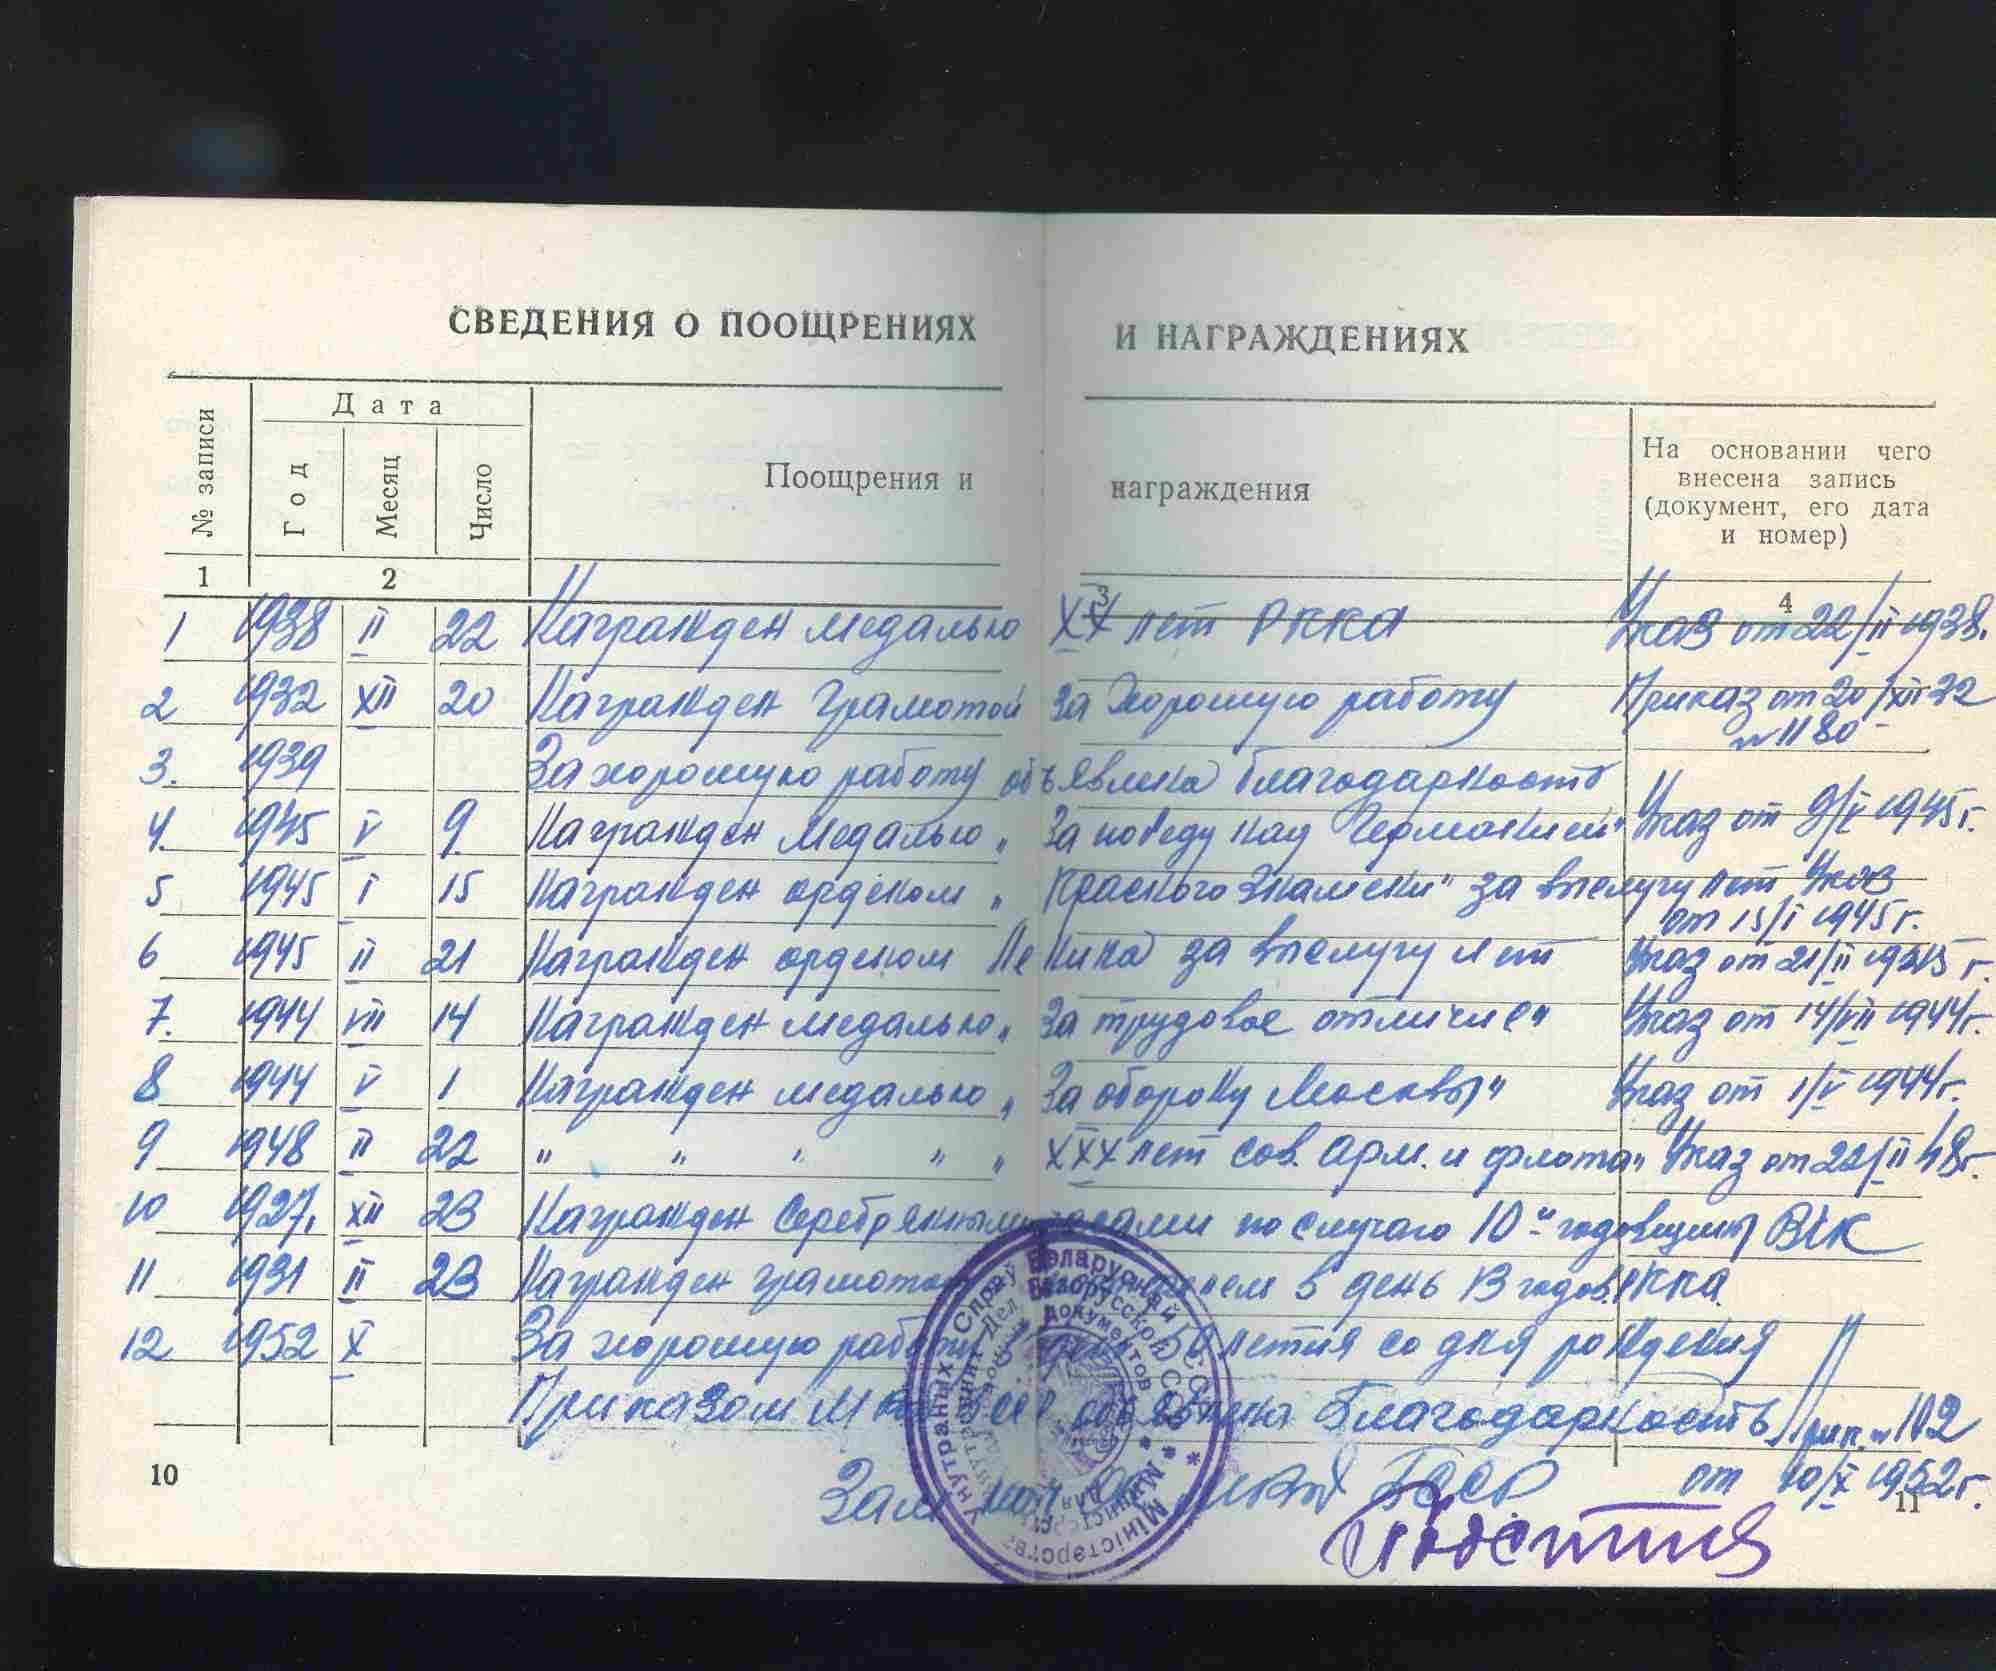 СВЕДЕНИЯ О ПООЩРЕНИЯХ И НАГРАЖДЕНИЯХ
№ записи
Дата
Год Месяц Число
Поощрения и награждения
На основании чего
внесена запись
(документ, его дата
и номер)
1 2 3 4
1 1938 II 22 Награжден медалью XX лет РККА Указ от 22/II 1938.
2 1932 XII 20 Награжден Грамотой За хорошую работу Приказ от 20/XII 32
№ 1180
3. 1939 За хорошую работу объявлена благодарность
4. 1945 V 9. Награжден Медалью „За победу над Германией" Указ от 9/V 1945 г.
5 1945 I 15 Награжден орденом „Красного Знамени" за выслугу лет Указ
от 15/I 1945 г.
6 1945 II 21 Награжден орденом Ленина за выслугу лет Указ от 21/II 1945 г.
7. 1944 VII 14 Награжден медалью „За трудовое отличие" Указ от 14/VII 1944 г.
8 1944 V 1 Награжден медалью „За оборону Москвы" Указ от 1/V 1944 г.
9 1948 II 22 " " " " „XXX лет сов. Арм. и флота" Указ от 22/II 48 г.
10 1927. XII 23 Награжден Серебряными часами по случаю 10-й годовщины ВЧК
11 1931 II 23 Награжден грамотой в день 13 годов. РККА.
12 1952 X За хорошую работу в день 50 летия со дня рождения
Приказом объявлена Благодарность Прик. № 102
от 10/X 1952 г.
Зам БССР
10
11
Міністэрства Унутраных Спраў Беларускай ССР
Министерство Внутренних Дел Белорусской ССР
Для документов